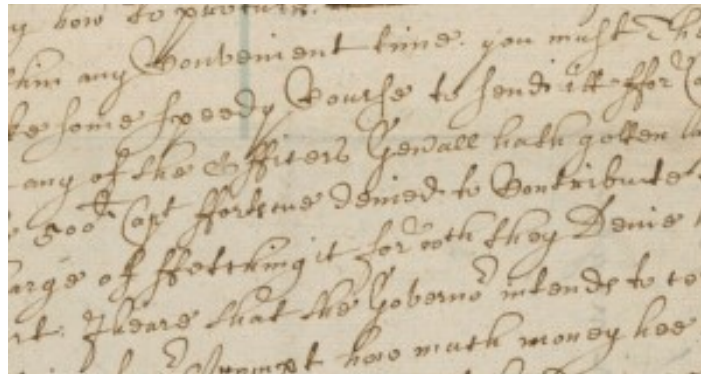 how to
thin any Convenient time. you must The
ke some speedy Course to send itt ffor
any of the Officers Gen'all hath gotten
500 Capt ffortscue denied to Contribute
arge of ffetching it for wch they Denie
rt. I heare that the Governor intends to
how much money hee